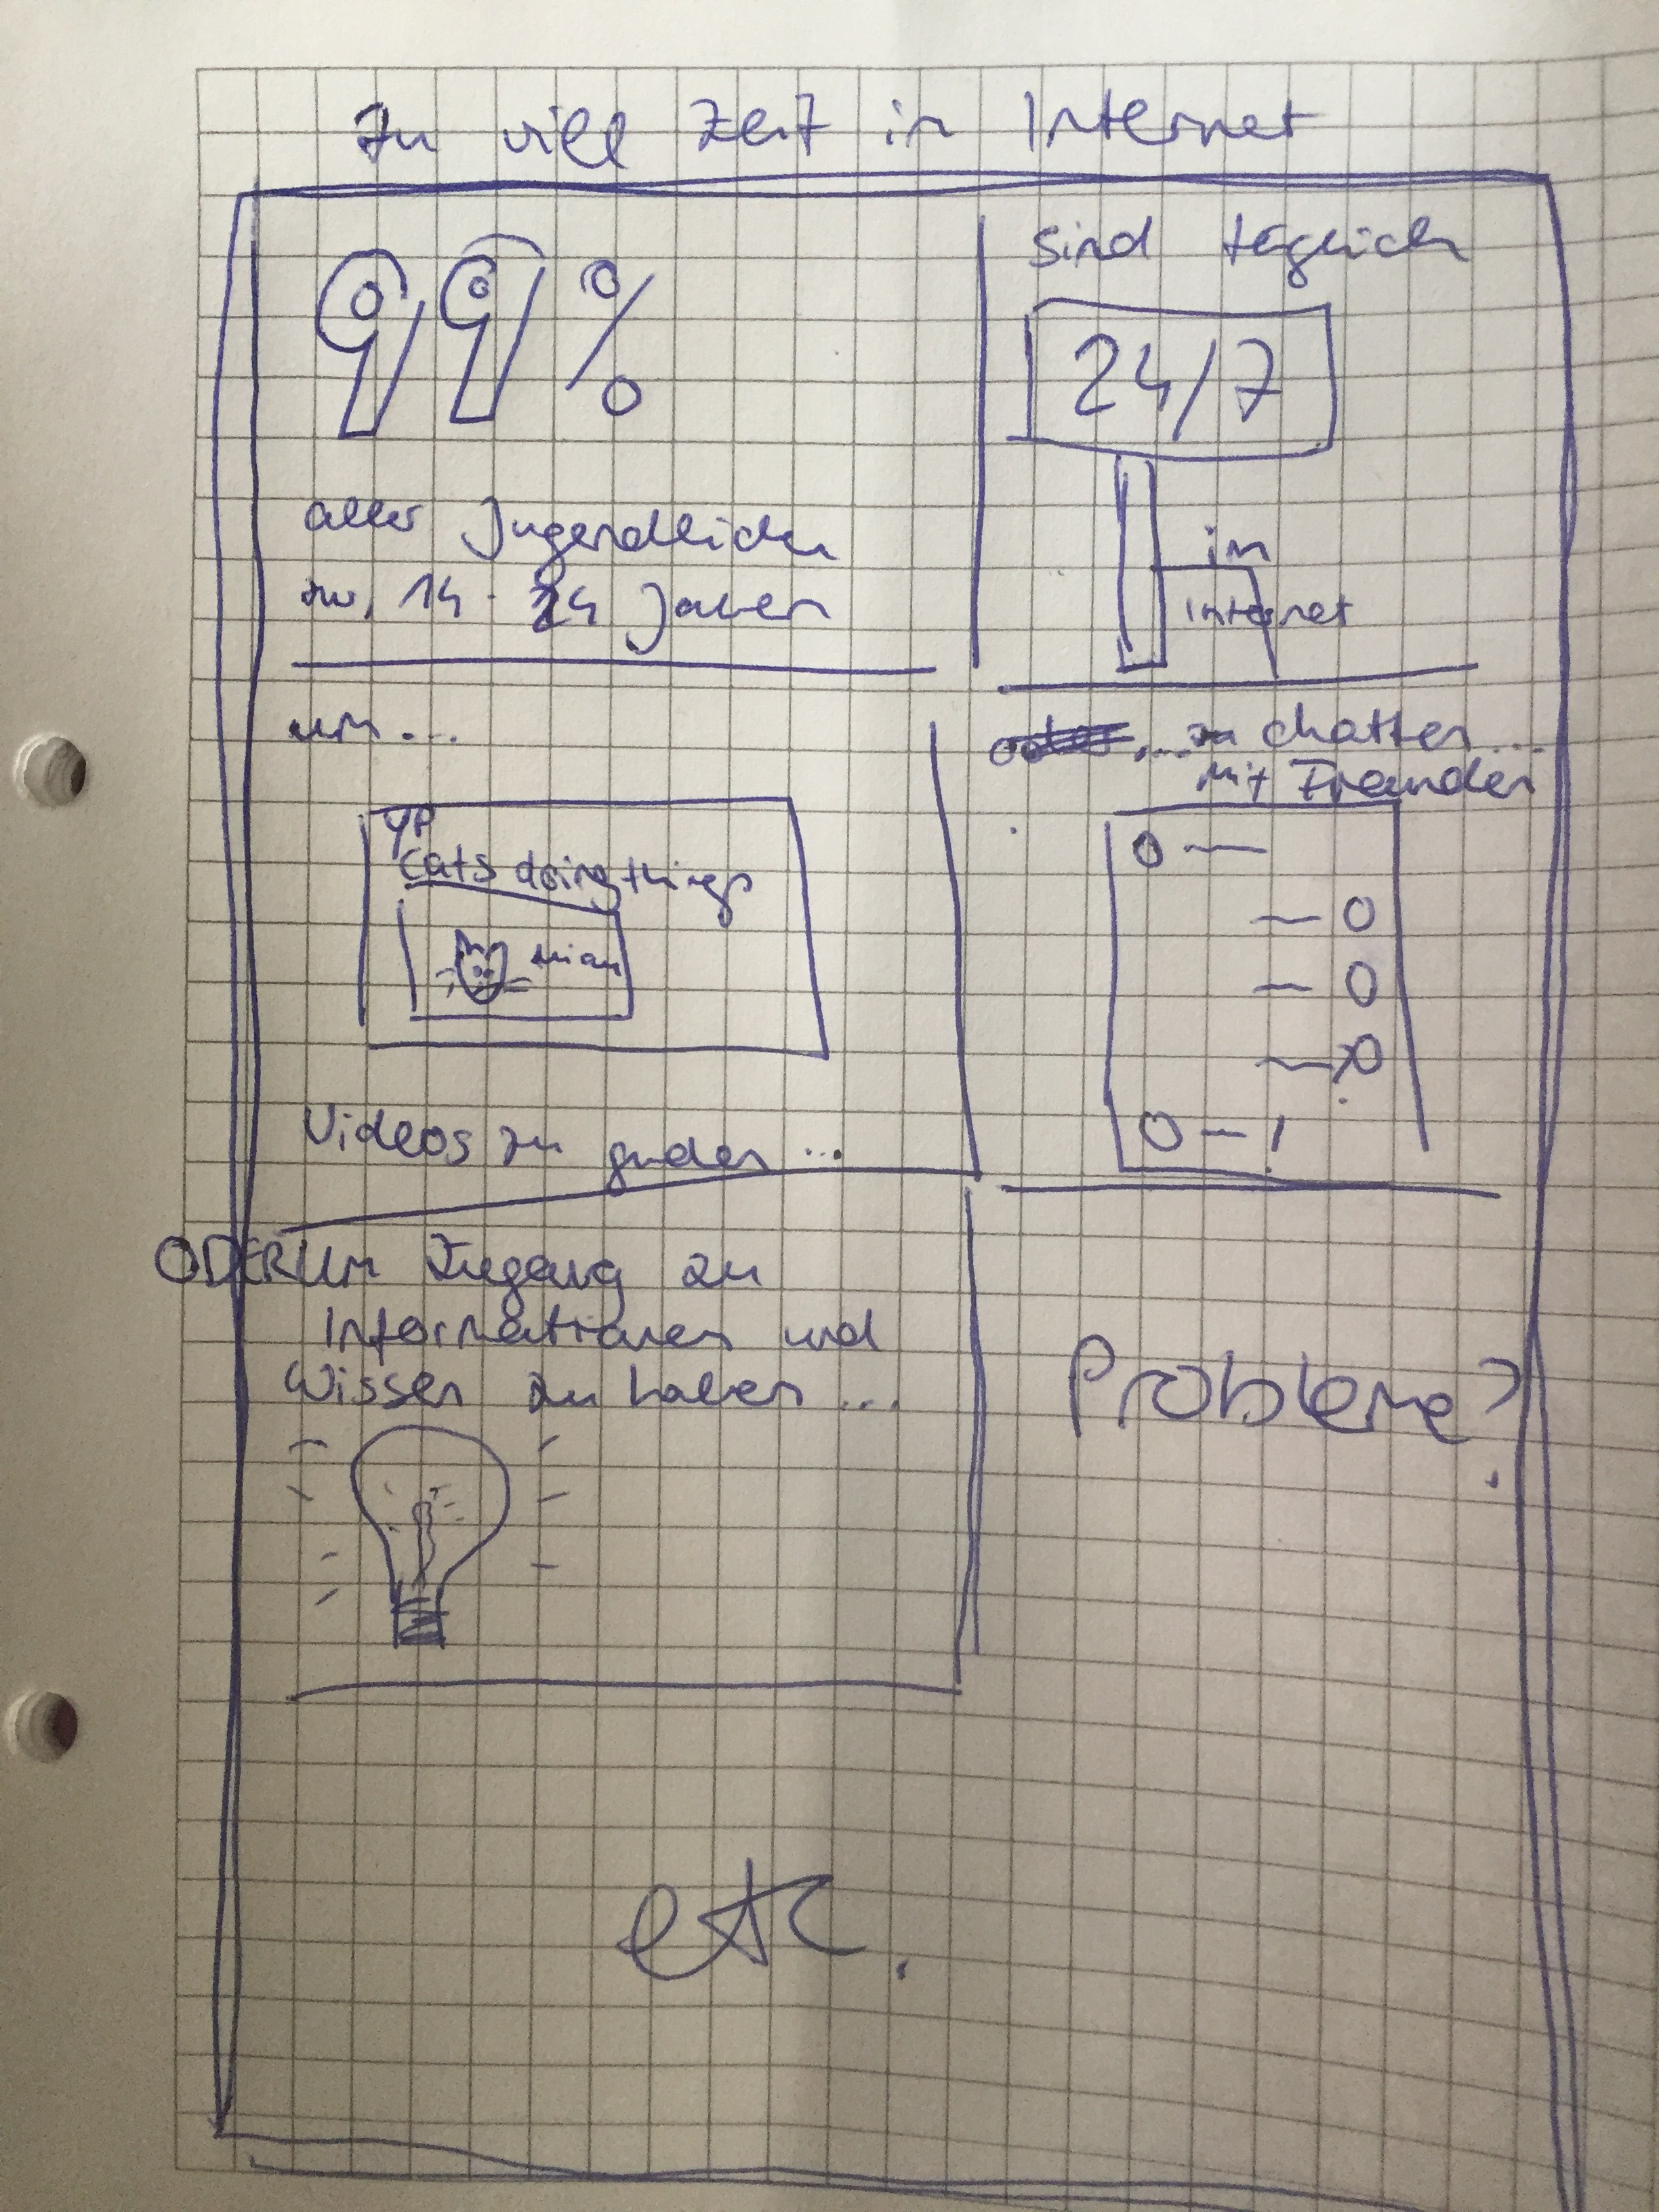 Zu viel Zeit in Internet
99%
aller Jugendlichen
zw. 14 - 24 Jahren
sind täglich
24/7
im
Internet
um...
cats doing things
miau
Videos zu gucken ...
... zu chatten ...
mit Freunden
ODER Um Zugang zu
Informationen und
Wissen zu haben ...
Probleme?
etc.